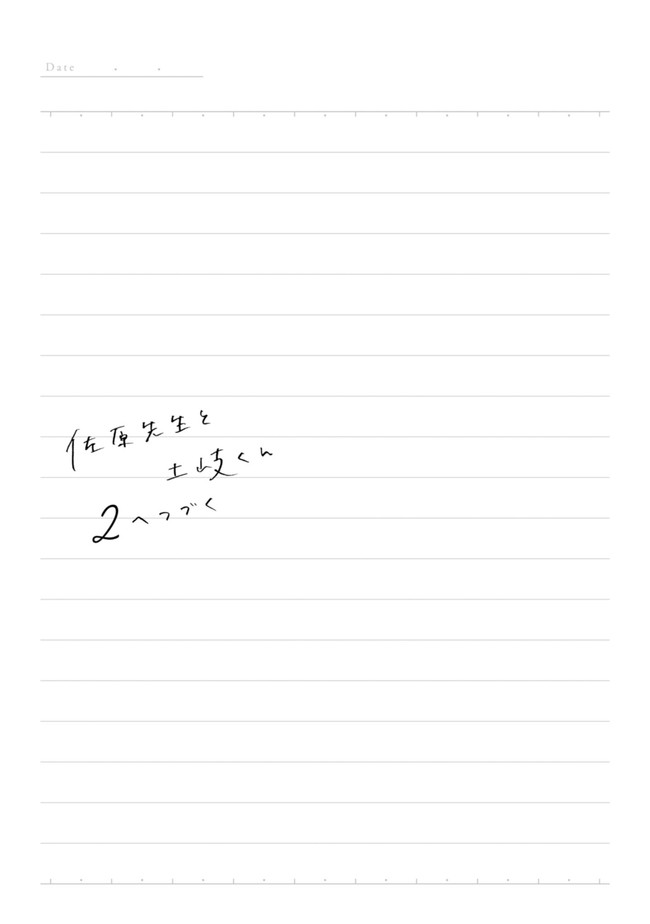 Date . .
佐原先生と
土岐くん
2へつづく